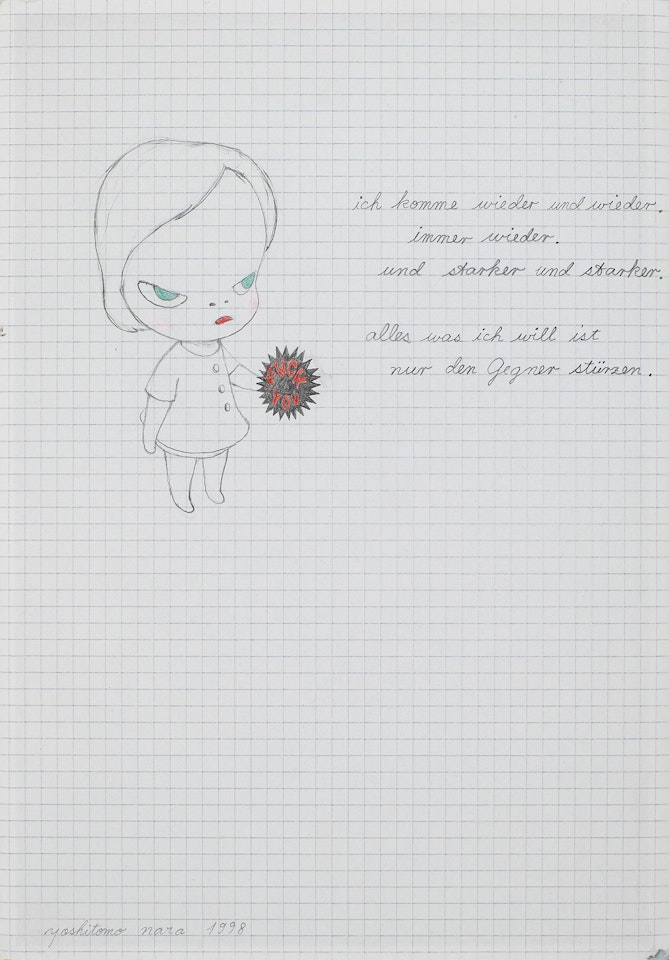 ich komme wieder und wieder.
immer wieder.
und starker und starker.
alles was ich will ist
nur den Gegner stürzen.
FUCK
YOU
yoshitomo nara 1998